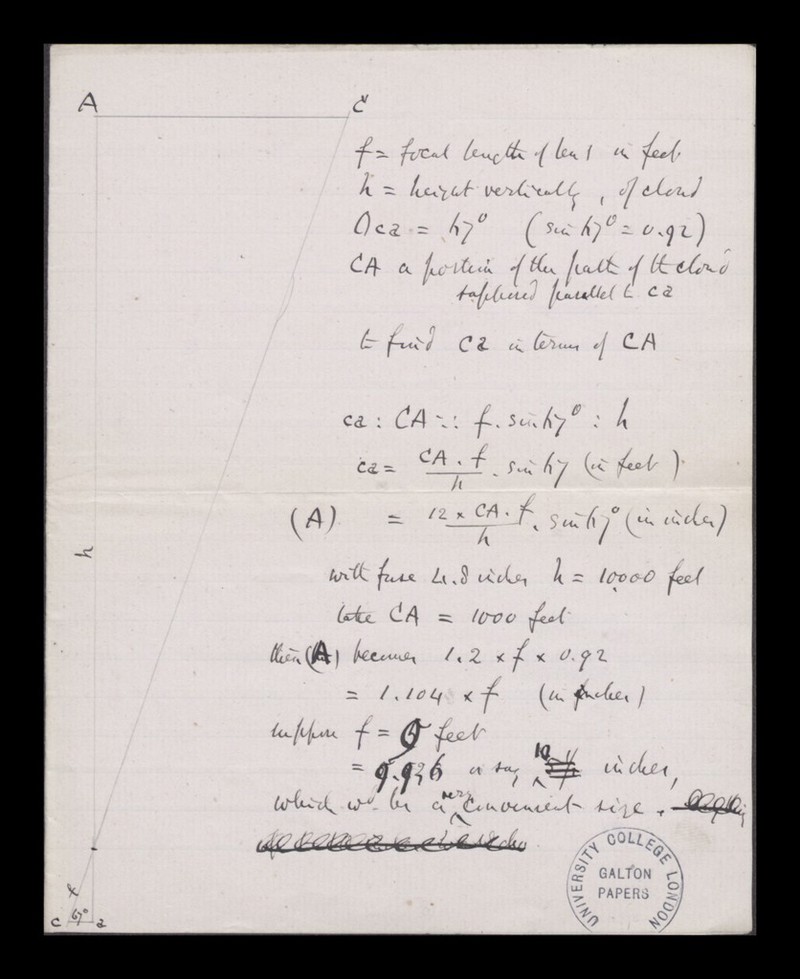 A C
f = focal length of lens in feet
h = height vertically, of cloud
Oca = 67° (sin 67° = 0.92)
CA a portion of the path of the cloud
supposed parallel to ca
to find ca in terms of CA
ca : CA :: f. sin 67° : h
ca = CA . f / h . sin 67 (in feet).
(A) = 12 x CA. f / h . sin 67° (in inches)
h
with fuse 4.8 inches h = 10,000 feet
take CA = 1000 feet
then (A) becomes 1.2 x f x 0.92
= 1.104 x f (in inches)
suppose f = 9 feet
= 9.936 or say 10 inches,
which wd. be a very convenient size.
f
c 67° a
UNIVERSITY COLLEGE LONDON
GALTON
PAPERS